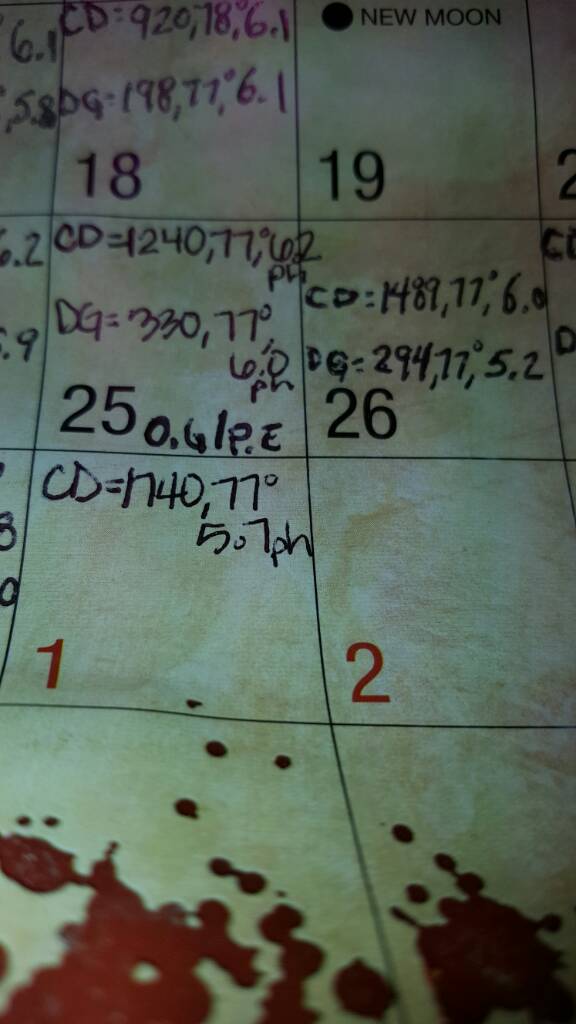 6.1
CD=920,78,°6.1
NEW MOON
,5.8
DG=198,77,°6.1
18
19
2
6.2
CD=1240,77,°6.2
ph
CD=1489,77,°6.0
.9
DG=330,77°,
6.0
ph
DG=294,77,°5.2
D
25
26
CD=1740,77°
5.7ph
0
1
2